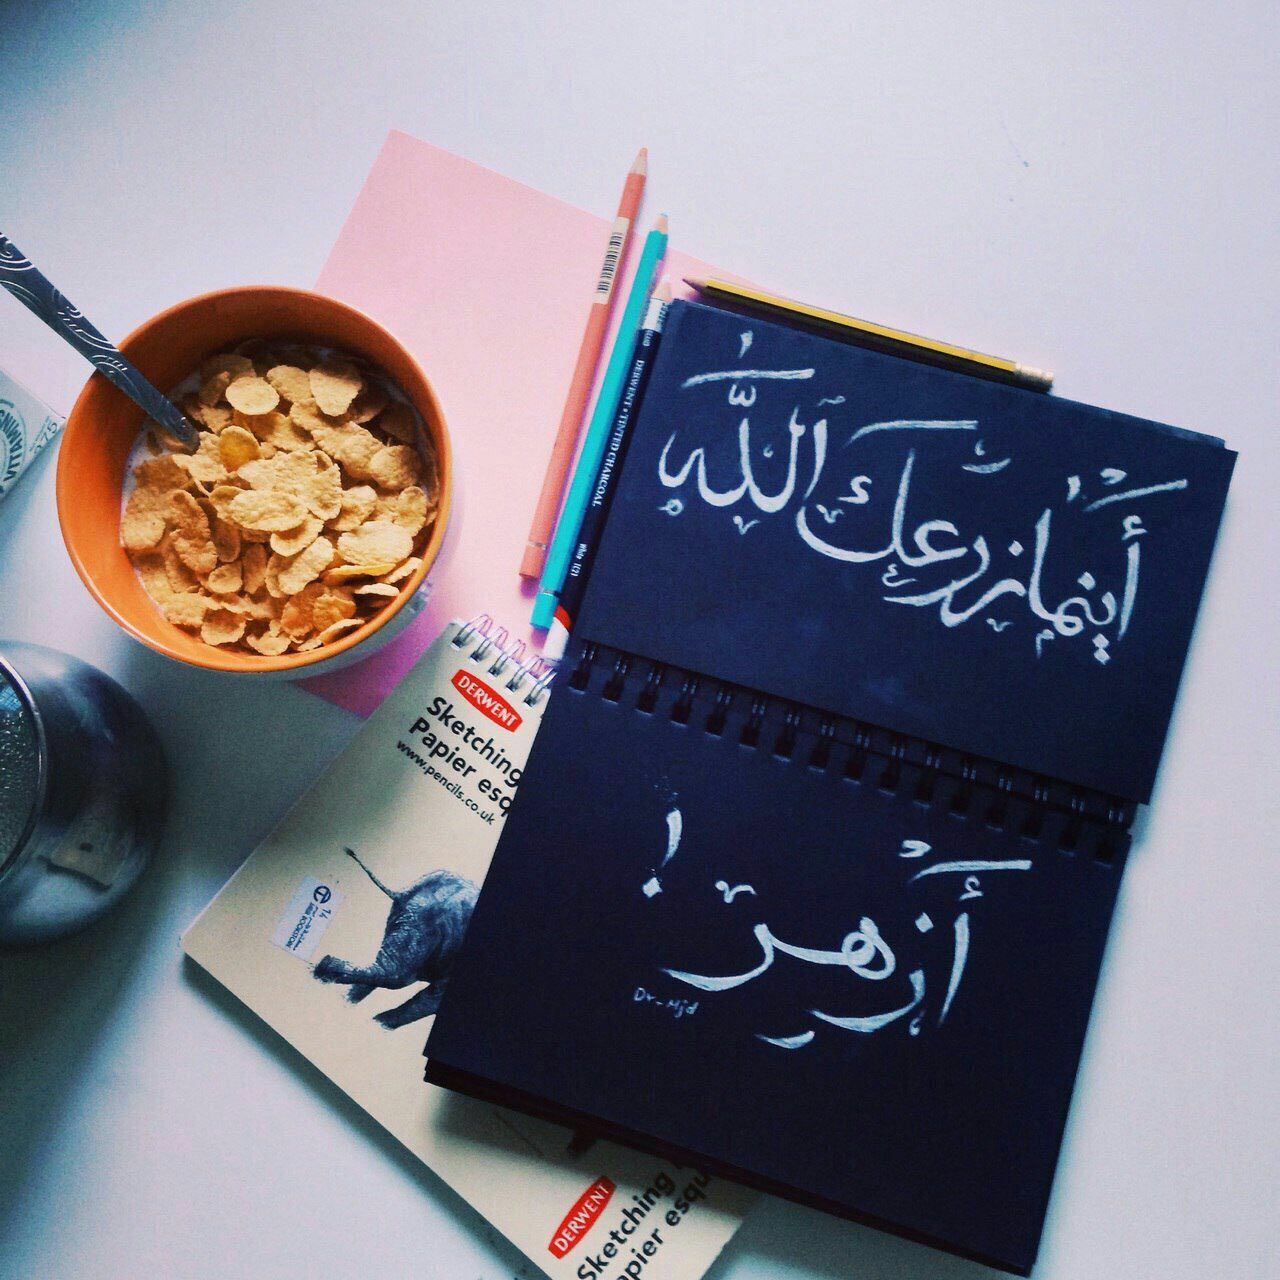 أينما يزرعك الله
أزهر !
Dr-Mjd
DERWENT
Sketching
Papier esq
www.pencils.co.uk
DERWENT
Sketching
Papier esqu
DERWENT • TINTED CHARCOAL
White TC21
VITAMINS